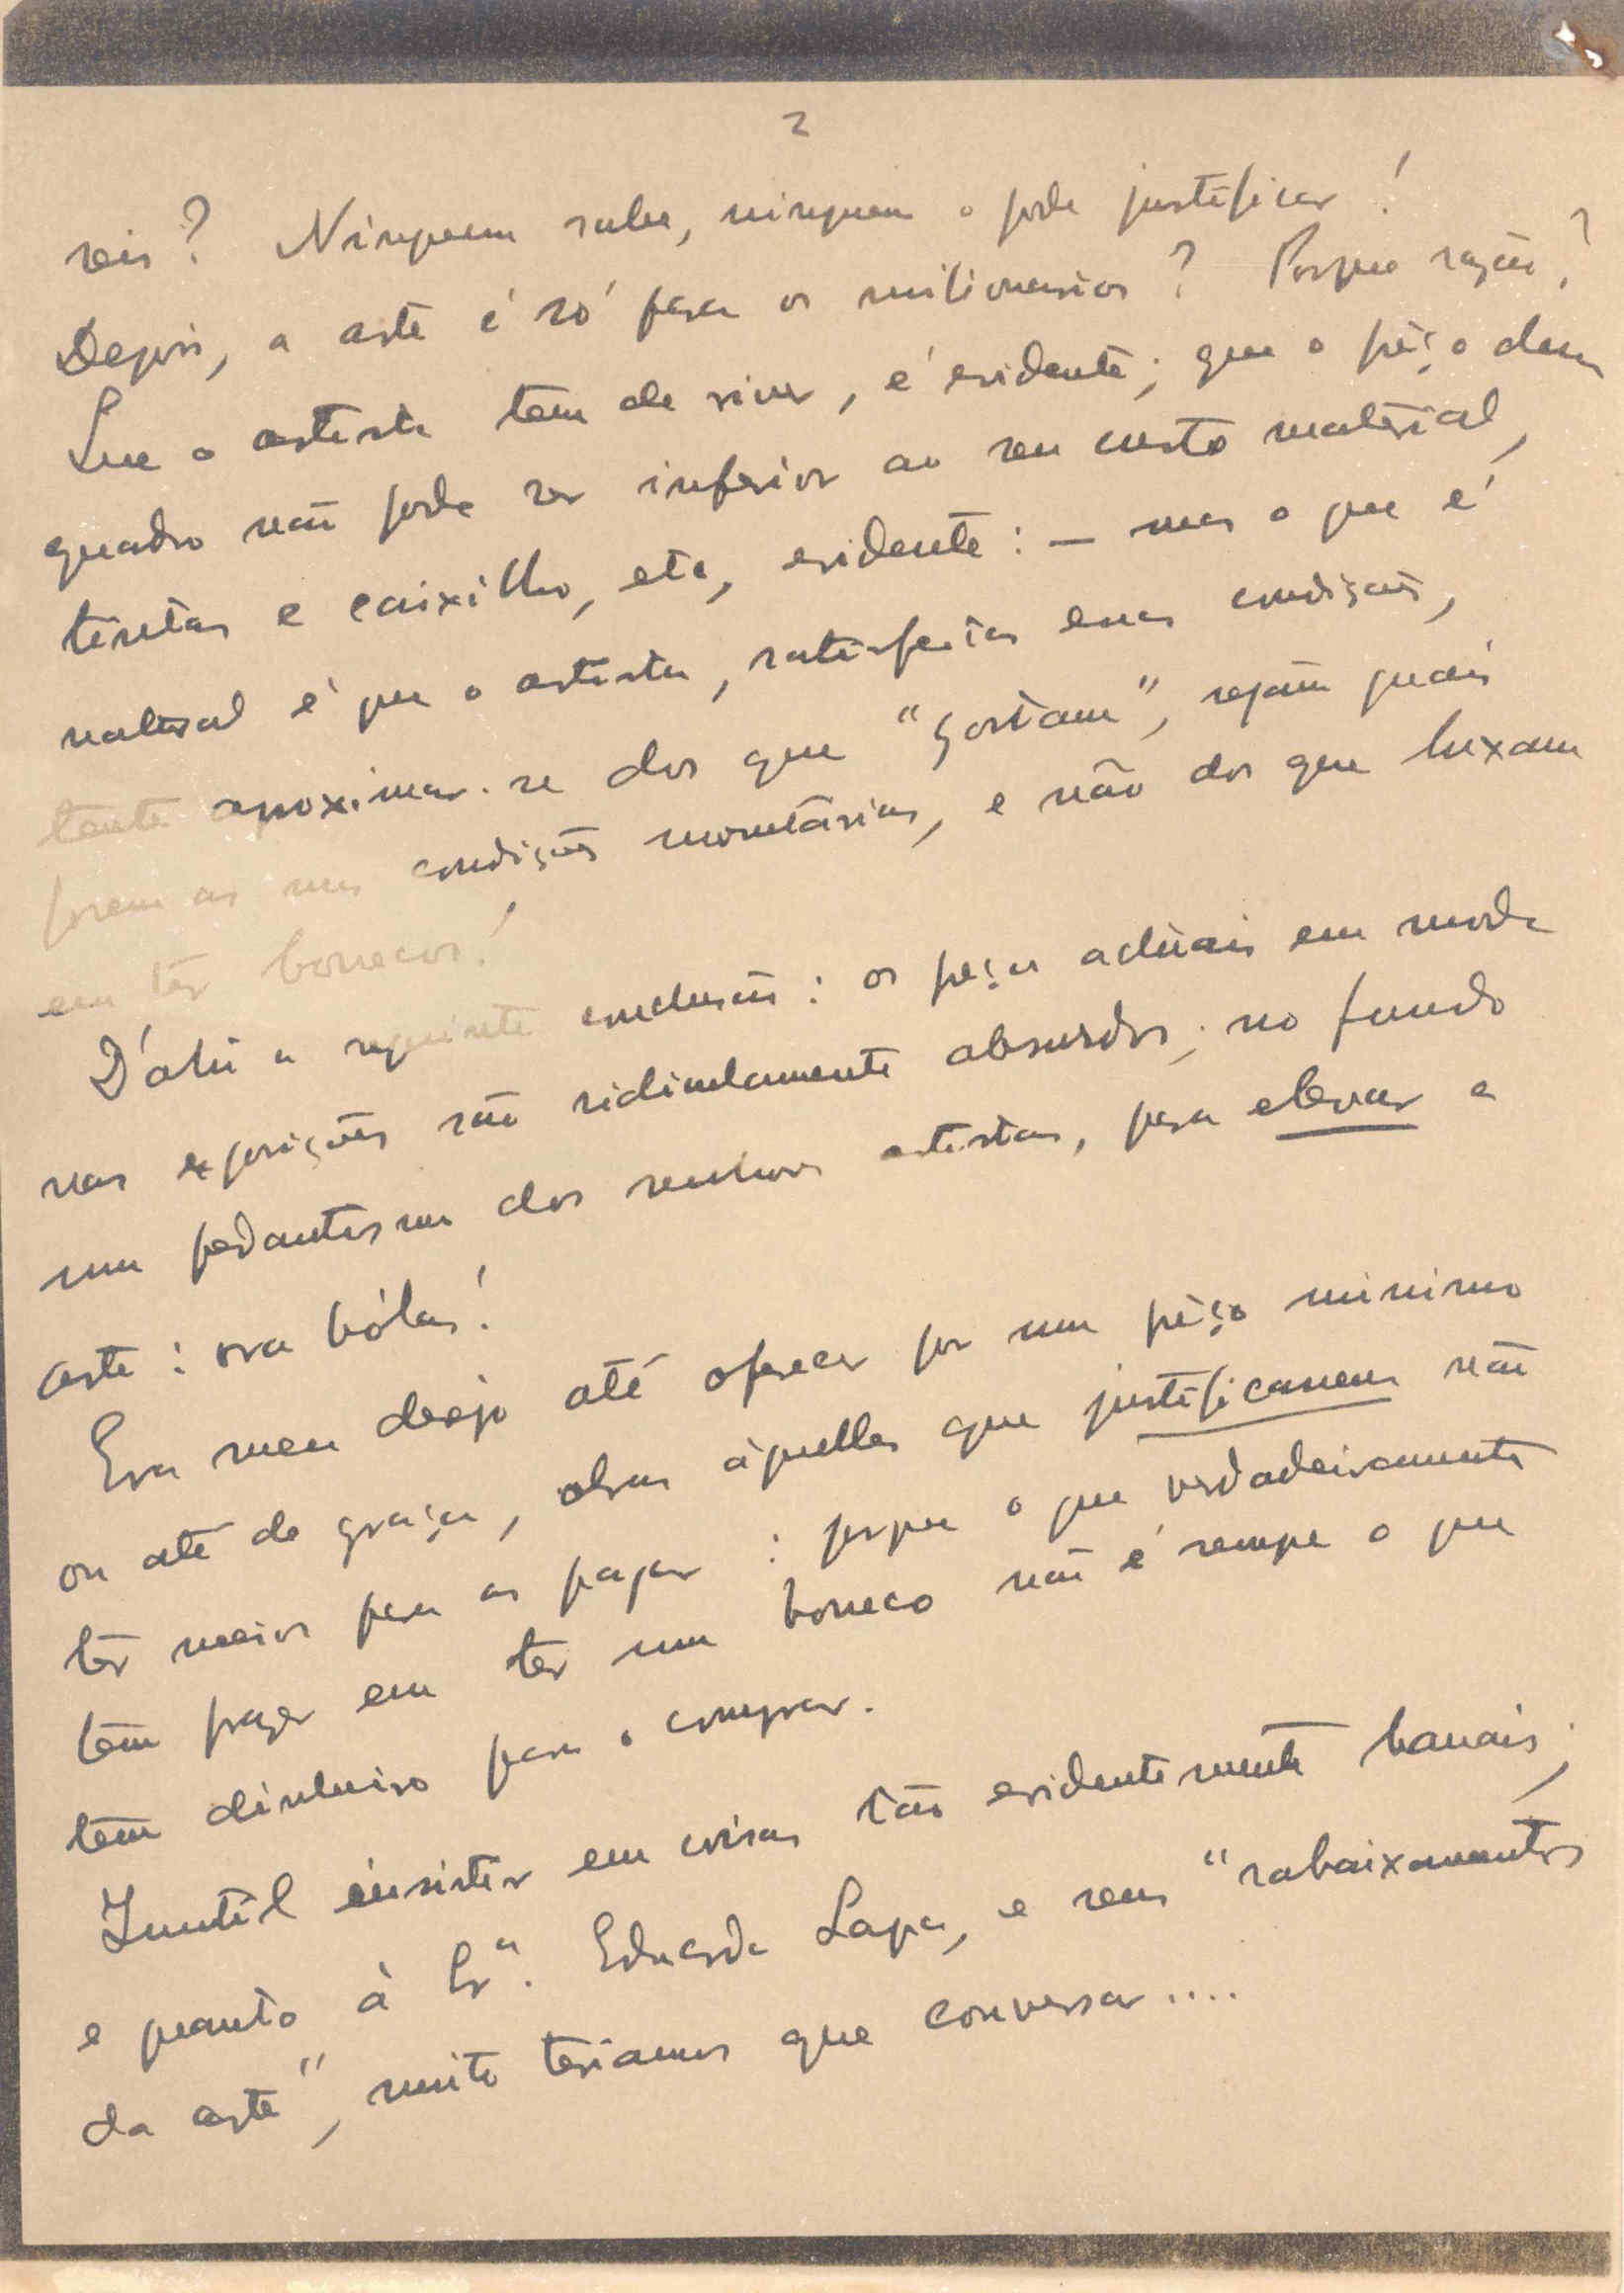 2
reis? Ninguem sabe, ninguem o pode justificar!
Depois, a arte é só para os milionarios? Porque razão?
Que o artista tem de viver, é evidente; que o prêço dum
quadro não pode ser inferior ao seu custo material,
tintas e caixilho, etc, evidente: — mas o que é
natural é que o artista, satisfeitas essas condições,
tente aproximar-se dos que "gostam", sejam quais
forem as suas condições monetárias, e não dos que luxam
em têr bonecos!
D'ahi a seguinte conclusão: os preços actuais em moda
nas exposições são ridiculamente absurdos; no fundo
um pedantismo dos senhores artistas, para elevar a
arte: ora bólas!
Era meu desejo até oferecer por um prêço minimo
ou até de graça, obras àquelles que justificassem não
têr meios para as pagar: porque o que verdadeiramente
têm prazer em ter um boneco não é sempre o que
têm dinheiro para o comprar.
Inutil insistir em coisas tão evidentemente banais;
e quanto à Srª. Eduarda Lapa, e seus "rabaixamentos
da arte", muito teriamos que conversar....